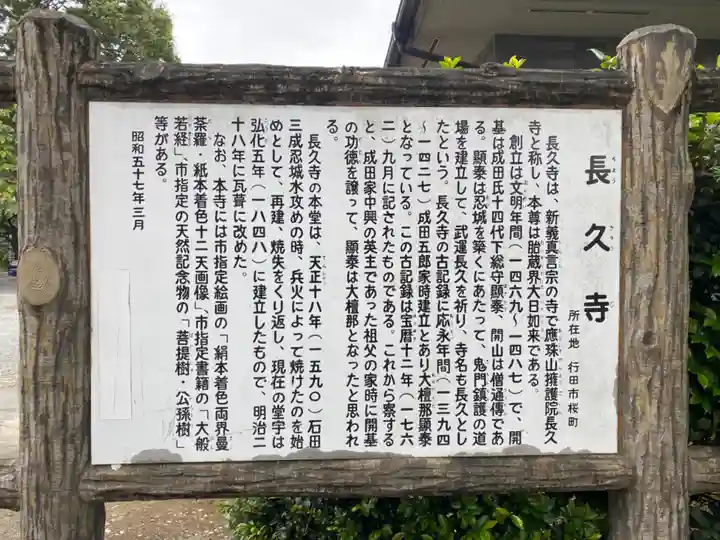 長久寺
所在地 行田市桜町
長久寺は、新義真言宗の寺で應珠山擁護院長久
寺と称し、本尊は胎蔵界大日如来である。
創立は文明年間(一四六九〜一四八七)で、開
基は成田氏十四代下総守顕泰、開山は僧通傳であ
る。顕泰は忍城を築くにあたって、鬼門鎮護の道
場を建立して、武運長久を祈り、寺名も長久とし
たという。長久寺の古記録に応永年間(一三九四
〜一四二七)成田五郎家時建立とあり大檀那顕泰
となっている。この古記録は宝暦十二年(一七六
二)九月に記されたものである。これから察する
と、成田家中興の英主であった祖父の家時に開基
の功徳を譲って、顕泰は大檀那となったと思われ
る。
長久寺の本堂は、天正十八年(一五九〇)石田
三成忍城水攻めの時、兵火によって焼けたのを始
めとして、再建、焼失をくり返し、現在の堂宇は
弘化五年(一八四八)に建立したもので、明治二
十八年に瓦葺に改めた。
なお、本寺には市指定絵画の「絹本着色両界曼
荼羅・紙本着色十二天画像」、市指定書籍の「大般
若経」、市指定の天然記念物の「菩提樹・公孫樹」
等がある。
昭和五十七年三月